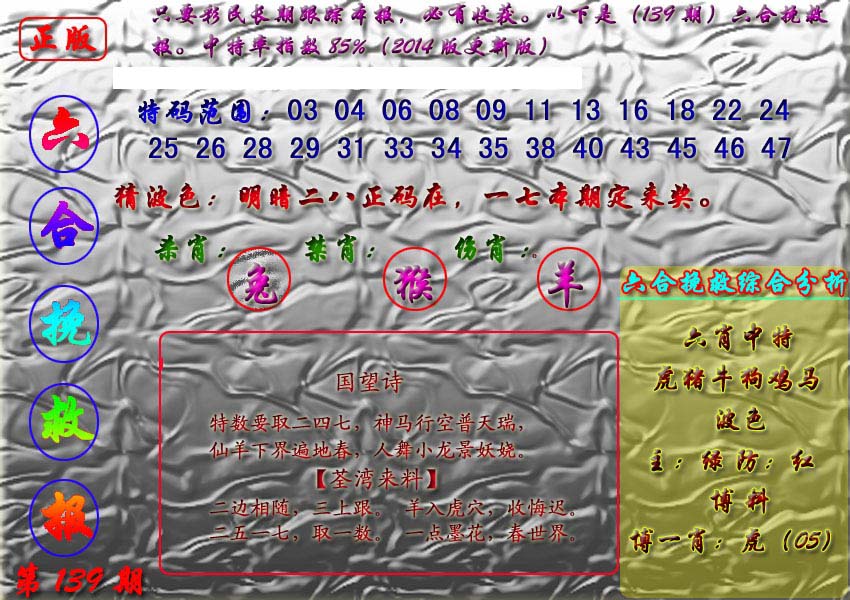 正版
只要彩民长期跟踪本报，必有收获。以下是（139期）六合挽救
报。中特率指数85%（2014版更新版）
六
合
挽
救
报
第139期
特码范围：03 04 06 08 09 11 13 16 18 22 24
25 26 28 29 31 33 34 35 38 40 43 45 46 47
猜波色：明暗二八正码在，一七本期定来奖。
杀肖：兔 禁肖：猴 伤肖：羊
国望诗
特数要取二四七，神马行空普天瑞，
仙羊下界遍地春，人舞小龙景妖娆。
【荃湾来料】
二边相随，三上跟。 羊入虎穴，收悔迟。
二五一七，取一数。 一点墨花，春世界。
六合挽救综合分析
六肖中特
虎猪牛狗鸡马
波色
主：绿防：红
博料
博一肖：虎（05）